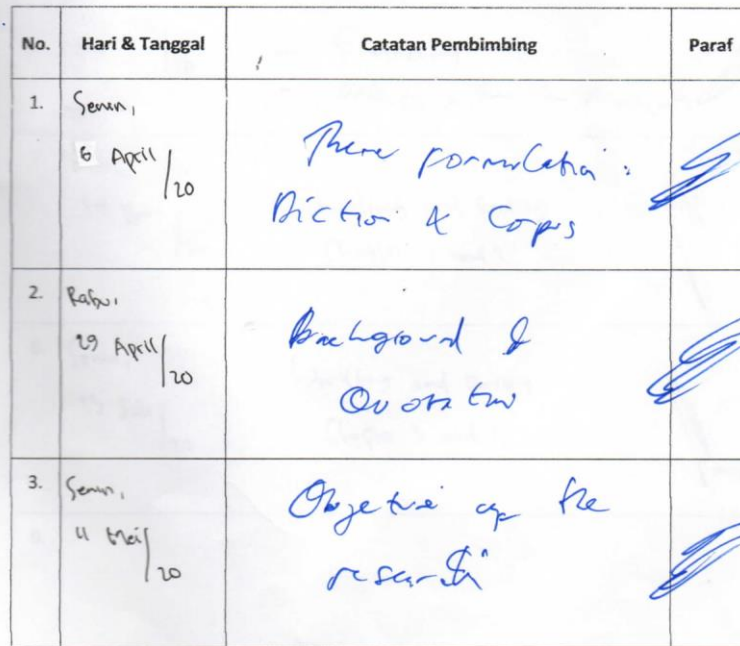 No. Hari & Tanggal Catatan Pembimbing Paraf
1. Senin,
6 April/20
Theme formulation :
Diction & Corpus
2. Rabu,
29 April/20
Background &
Quotation
3. Senin,
11 Mei/20
Objective of the
research